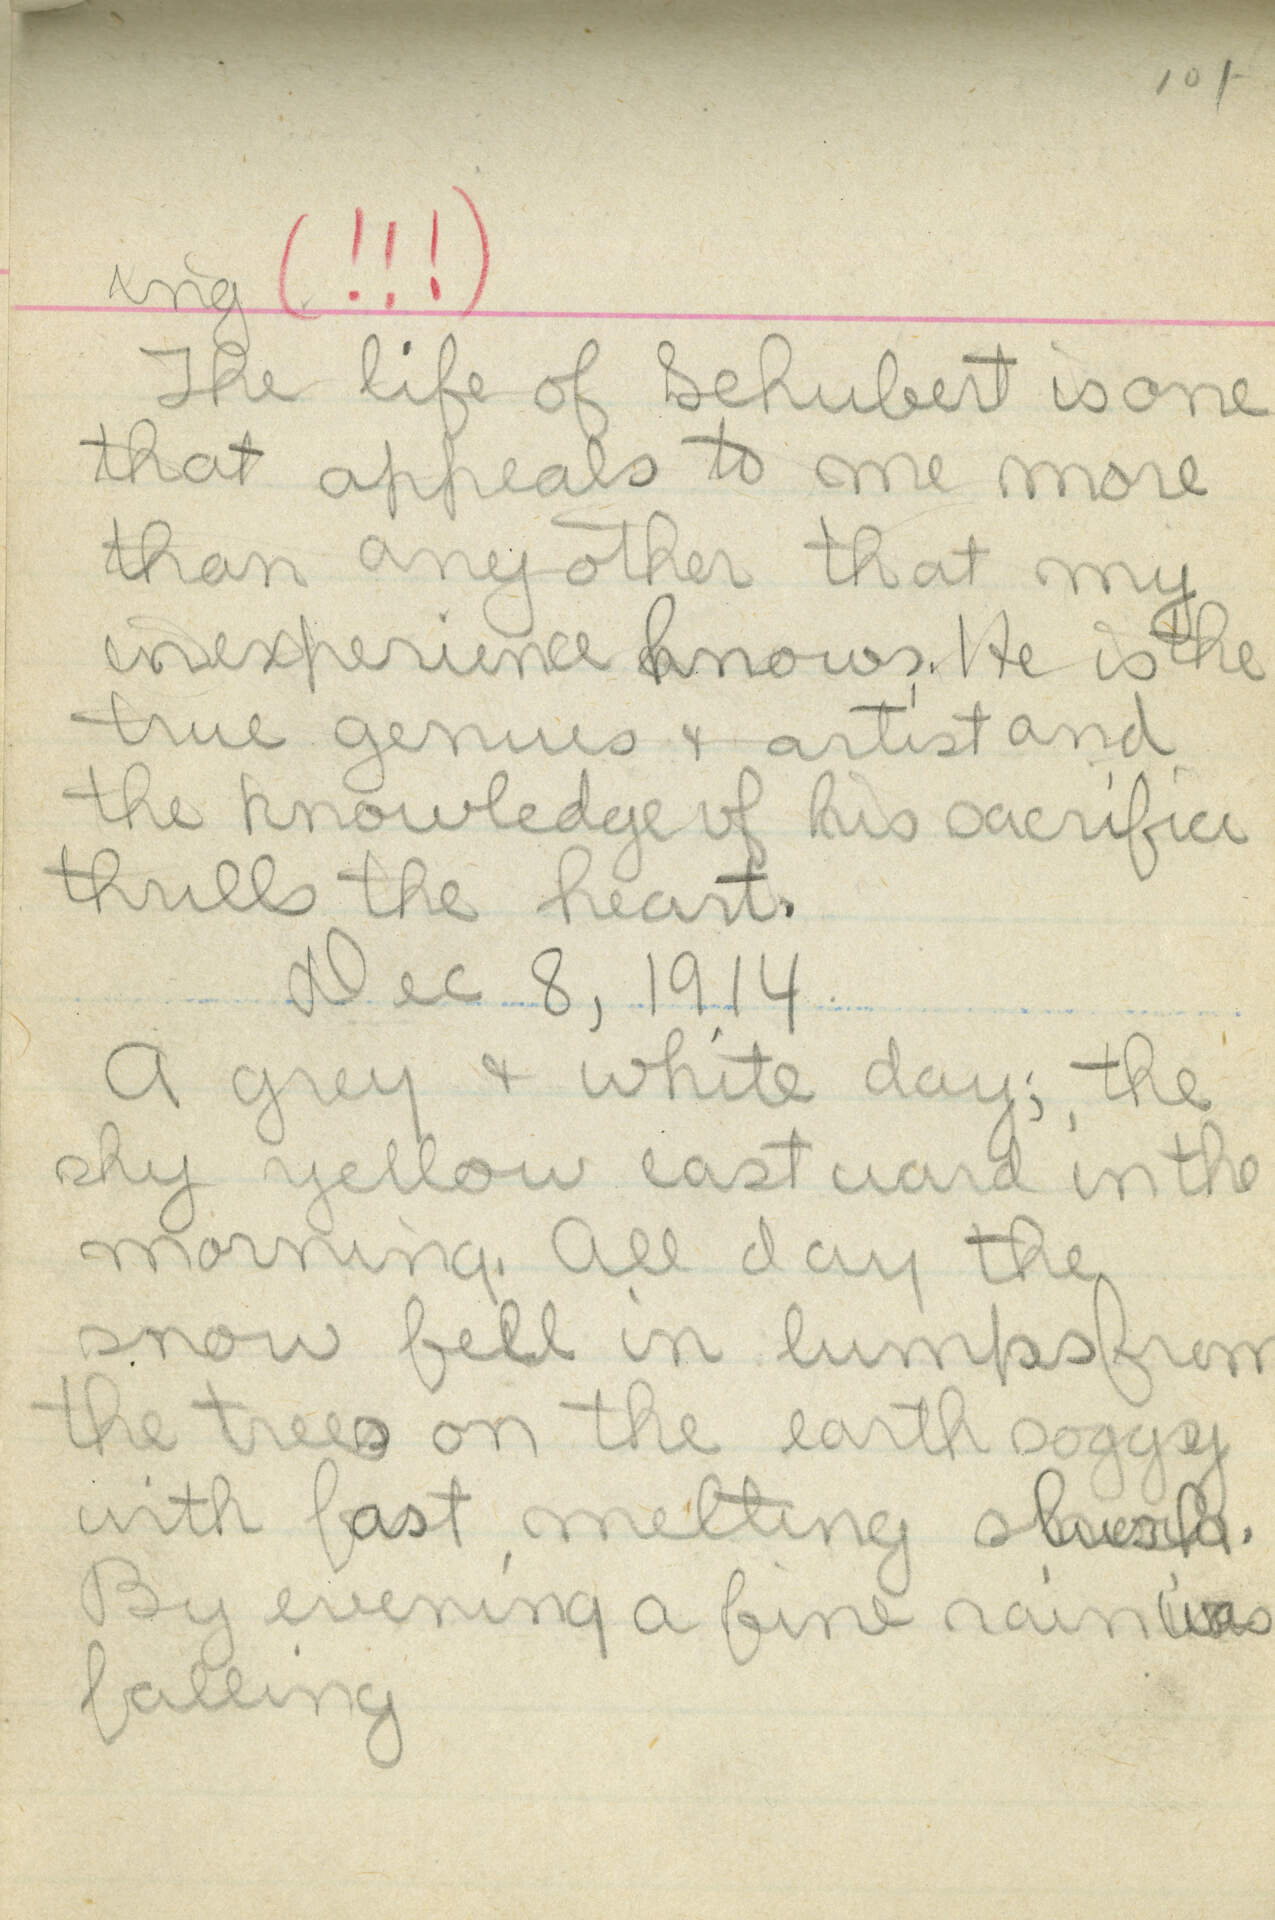 101
ing (!!!)
The life of Schubert is one
that appeals to me more
than any other that my
inexperience knows. He is the
true genius & artist and
the knowledge of his sacrifice
thrills the heart.
Dec 8, 1914
A grey & white day; the
sky yellow eastward in the
morning. All day the
snow fell in lumps from
the trees on the earth soggy
with fast melting slush.
By evening a fine rain was
falling